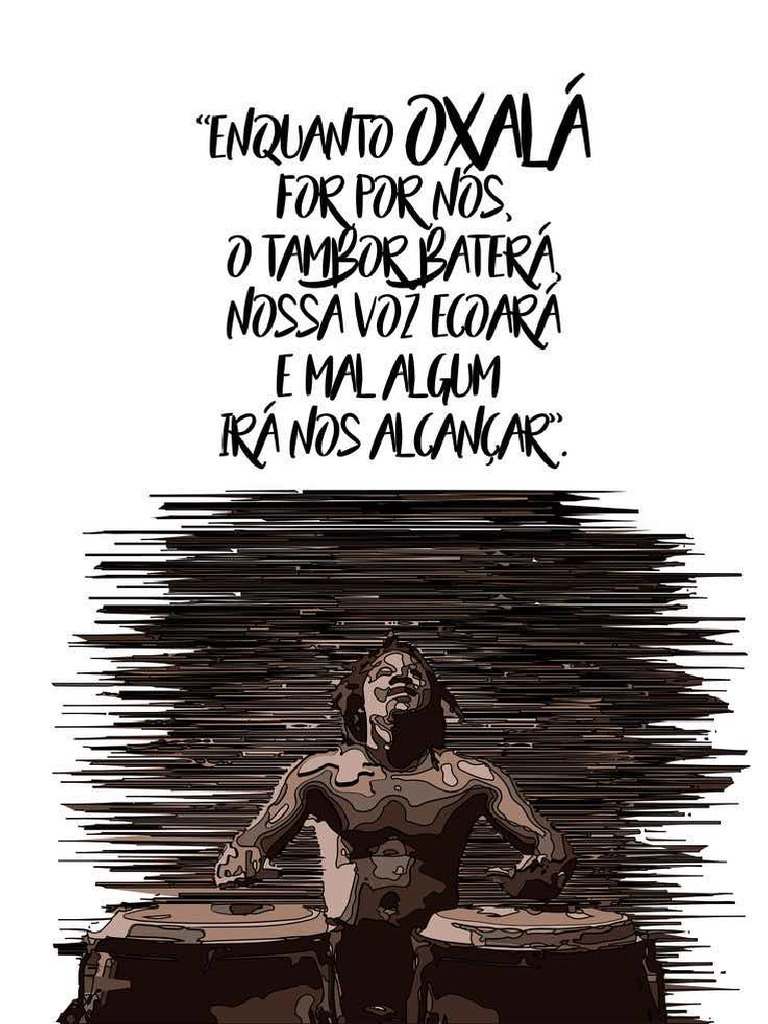 “ENQUANTO OXALÁ
FOR POR NÓS,
O TAMBOR BATERÁ,
NOSSA VOZ ECOARÁ
E MAL ALGUM
IRÁ NOS ALCANÇAR”.